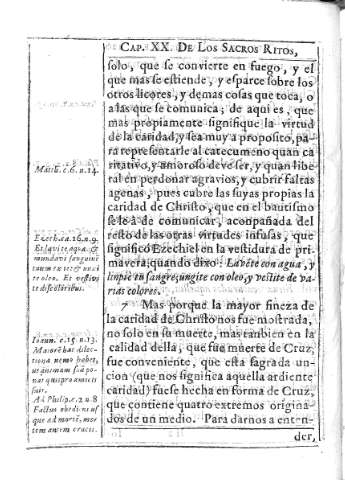 CAP. XX. DE LOS SACROS RITOS,
solo, que se convierte en fuego, y el
que mas se estiende, y esparce sobre los
otros licores, y demas cosas que toca, o
a las que se comunica; de aqui es, que
mas propiamente signifique la virtud
de la caridad, y sea muy a proposito, pa-
ra representarle al catecumeno quan ca
ritativo, y amoroso deve ser, y quan libe
ral en perdonar agravios, y cubrir faltas
agenas, pues cubre las suyas propias la
caridad de Christo, que en el bautismo
se le â de comunicar, aconpañada del
resto de las otras virtudes infusas, que
significò Ezechiel en la vestidura de pri-
mavera, quando dixo: Lavete con agua, y
linpie tu sangre; ungite con oleo, y vestite de va-
rias colores.
7 Mas porque la mayor fineza de
la caridad de Christo nos fue mostrada,
no solo en su muerte, mas tanbien en la
calidad della, que fue muerte de Cruz,
fue conveniente, que esta sagrada un-
cion (que nos significa aquella ardiente
caridad) fuese hecha en forma de Cruz,
que contiene quatro extremos origina-
dos de un medio. Para darnos a enten-
der,
Matth. c. 6. n. 14.
Ezech. ca. 16. n. 9.
Et lavi te aqua &
mundavi sanguinē
tuum ex te: & unxi
te oleo. Et vestivi
te discoloribus.
Ioann. c. 15. n. 13.
Maiorē hac dilec-
tionem nemo habet,
ut animam suā po-
nat quis pro amicis
suis.
Ad Philip. c. 2 n 8
Factus obediens uſ
que ad mortē, mor
tem autem crucis.